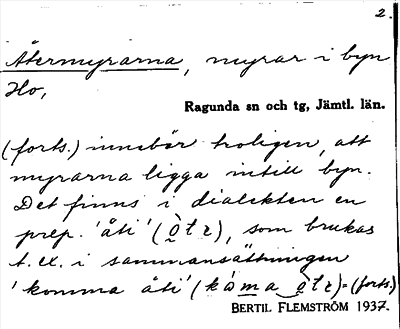 2.
Återmyrarna, myrar i byn
Ho,
Ragunda sn och tg, Jämtl. län.
(forts.) innebär troligen, att
myrarna ligga intill byn.
Det finns i dialekten en
prep. 'åti' (ȯ̬tɪ), som brukas
t. ex. i sammansättningen
'komma åti' (kȧma o̬tɪ) = (forts.)
BERTIL FLEMSTRÖM 1937.